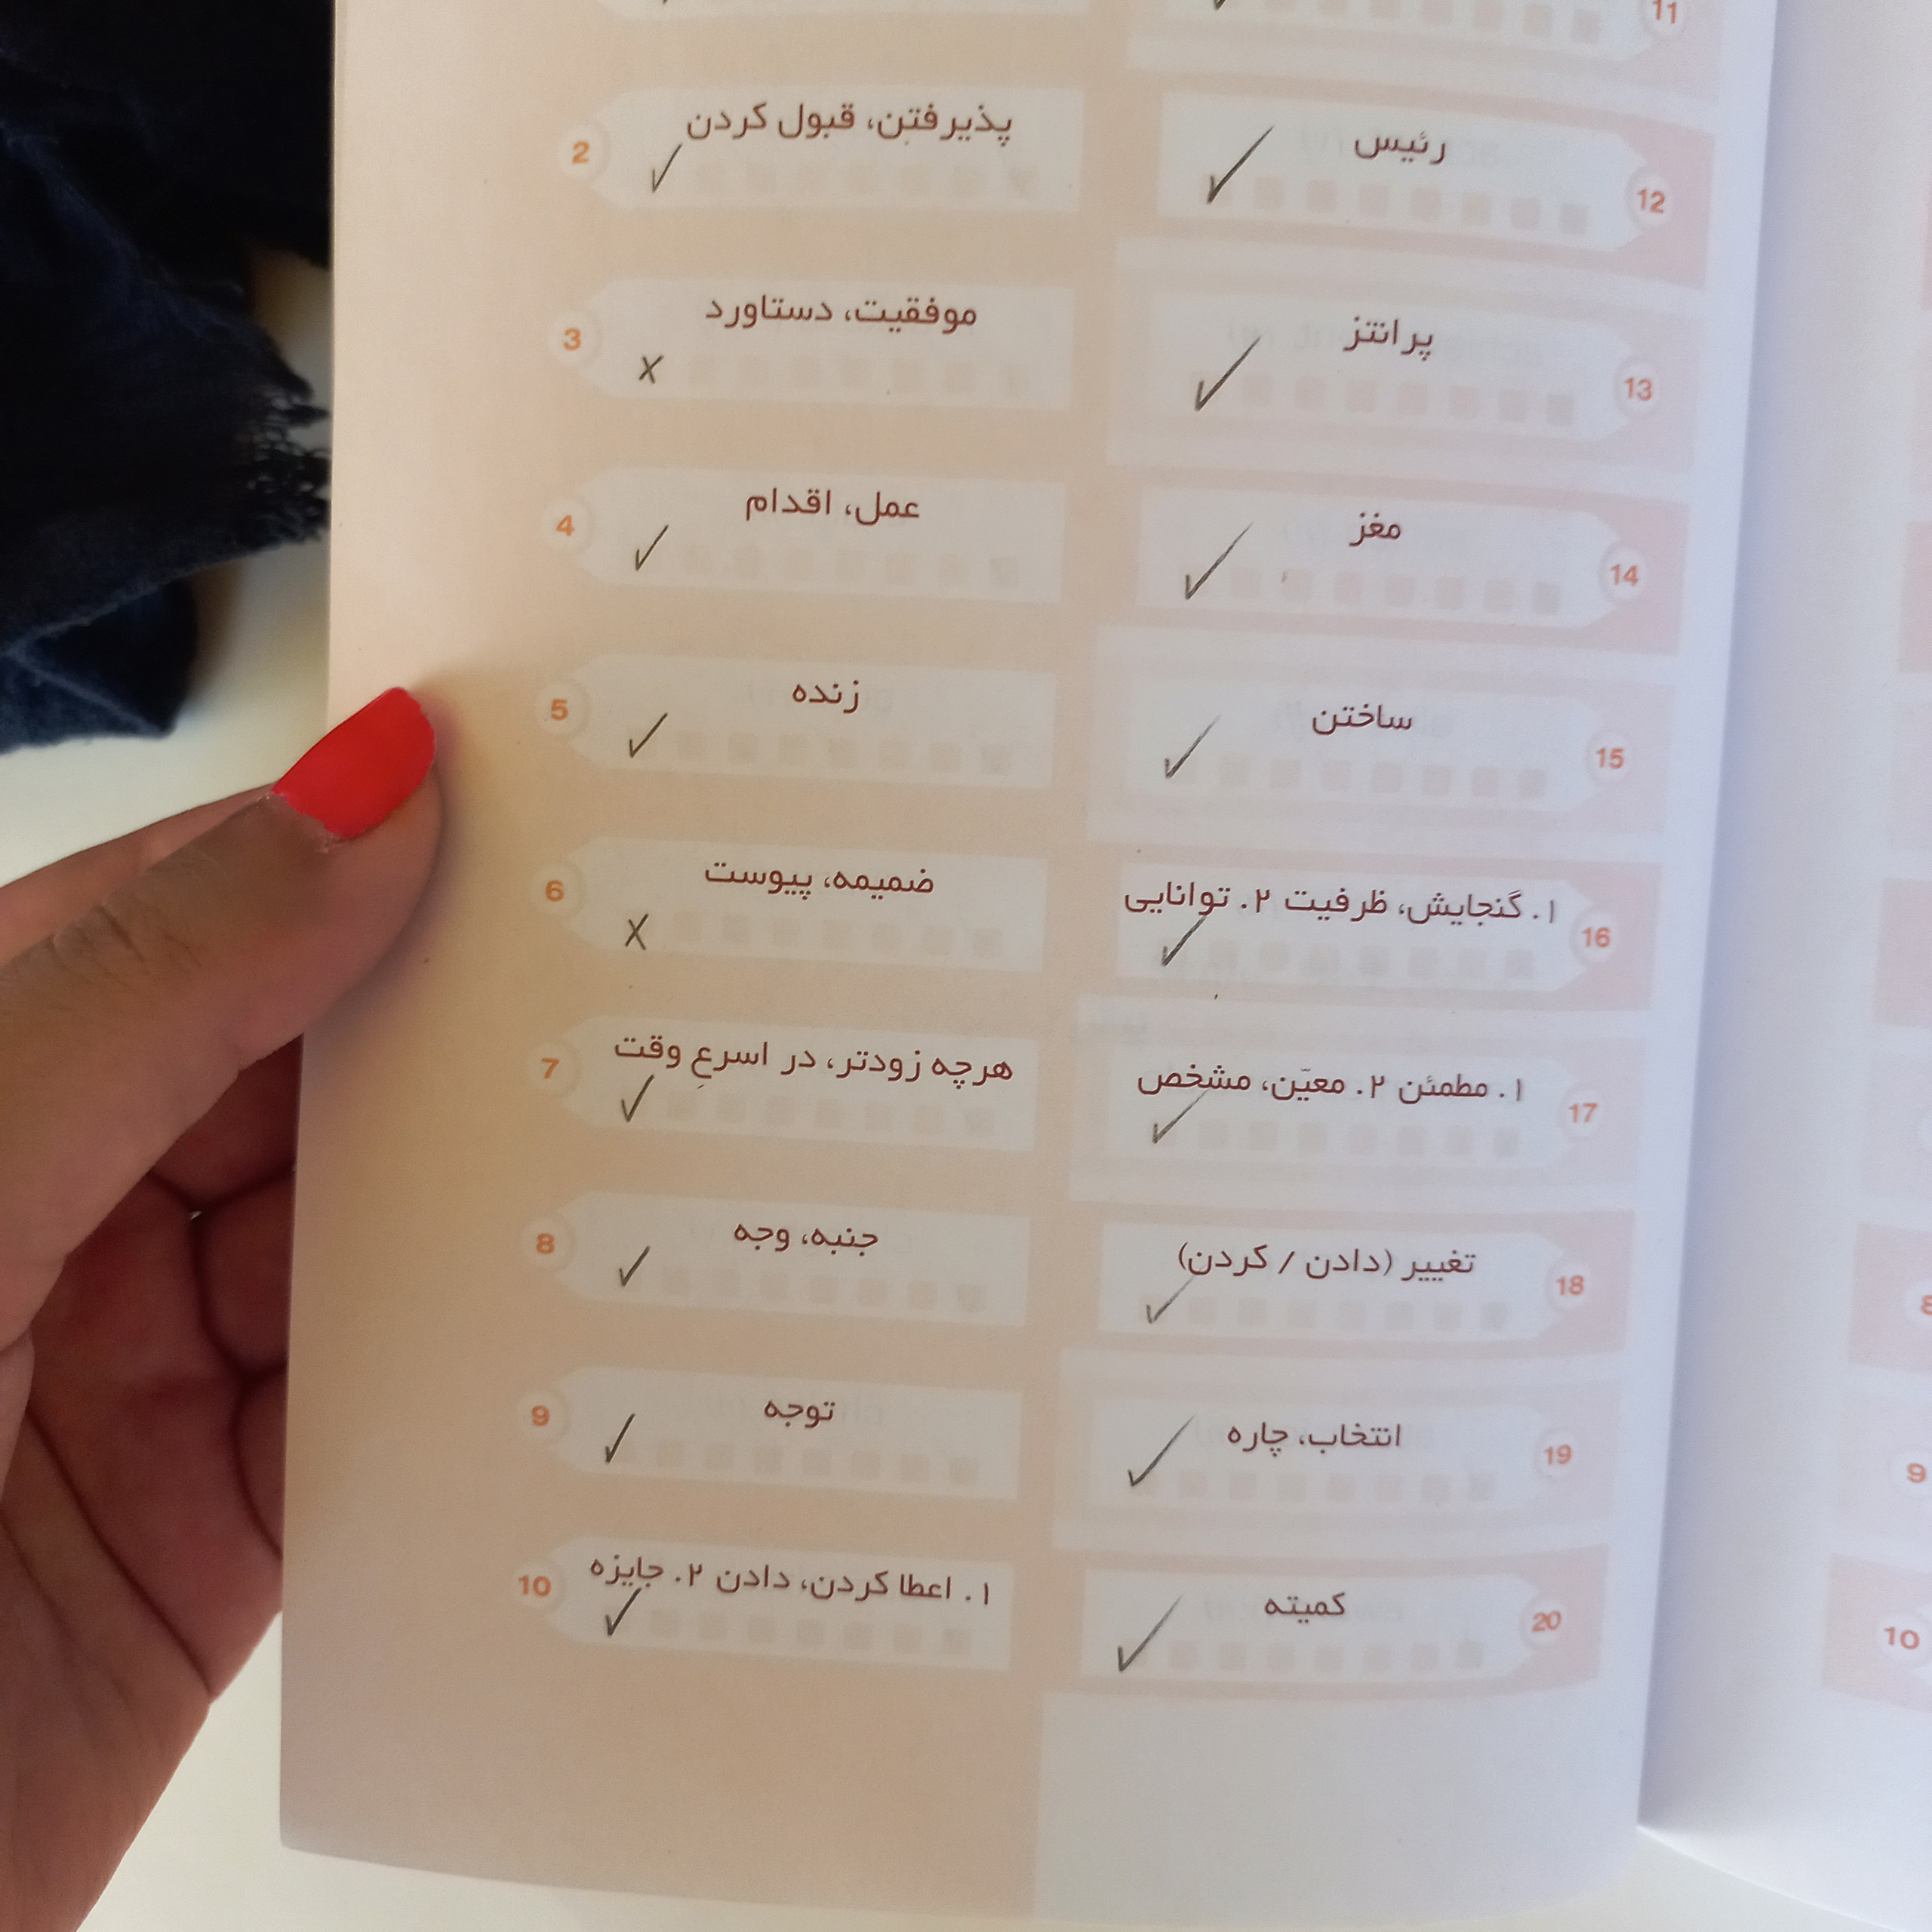 11
12
رئیس
13
پرانتز
14
مغز
15
ساختن
16
۱. گنجایش، ظرفیت ۲. توانایی
17
۱. مطمئن ۲. معیّن، مشخص
18
تغییر (دادن / کردن)
19
انتخاب، چاره
20
کمیته
2
پذیرفتن، قبول کردن
3
موفقیت، دستاورد
4
عمل، اقدام
5
زنده
6
ضمیمه، پیوست
7
هرچه زودتر، در اسرعِ وقت
8
جنبه، وجه
9
توجه
10
۱. اعطا کردن، دادن ۲. جایزه
8
9
10